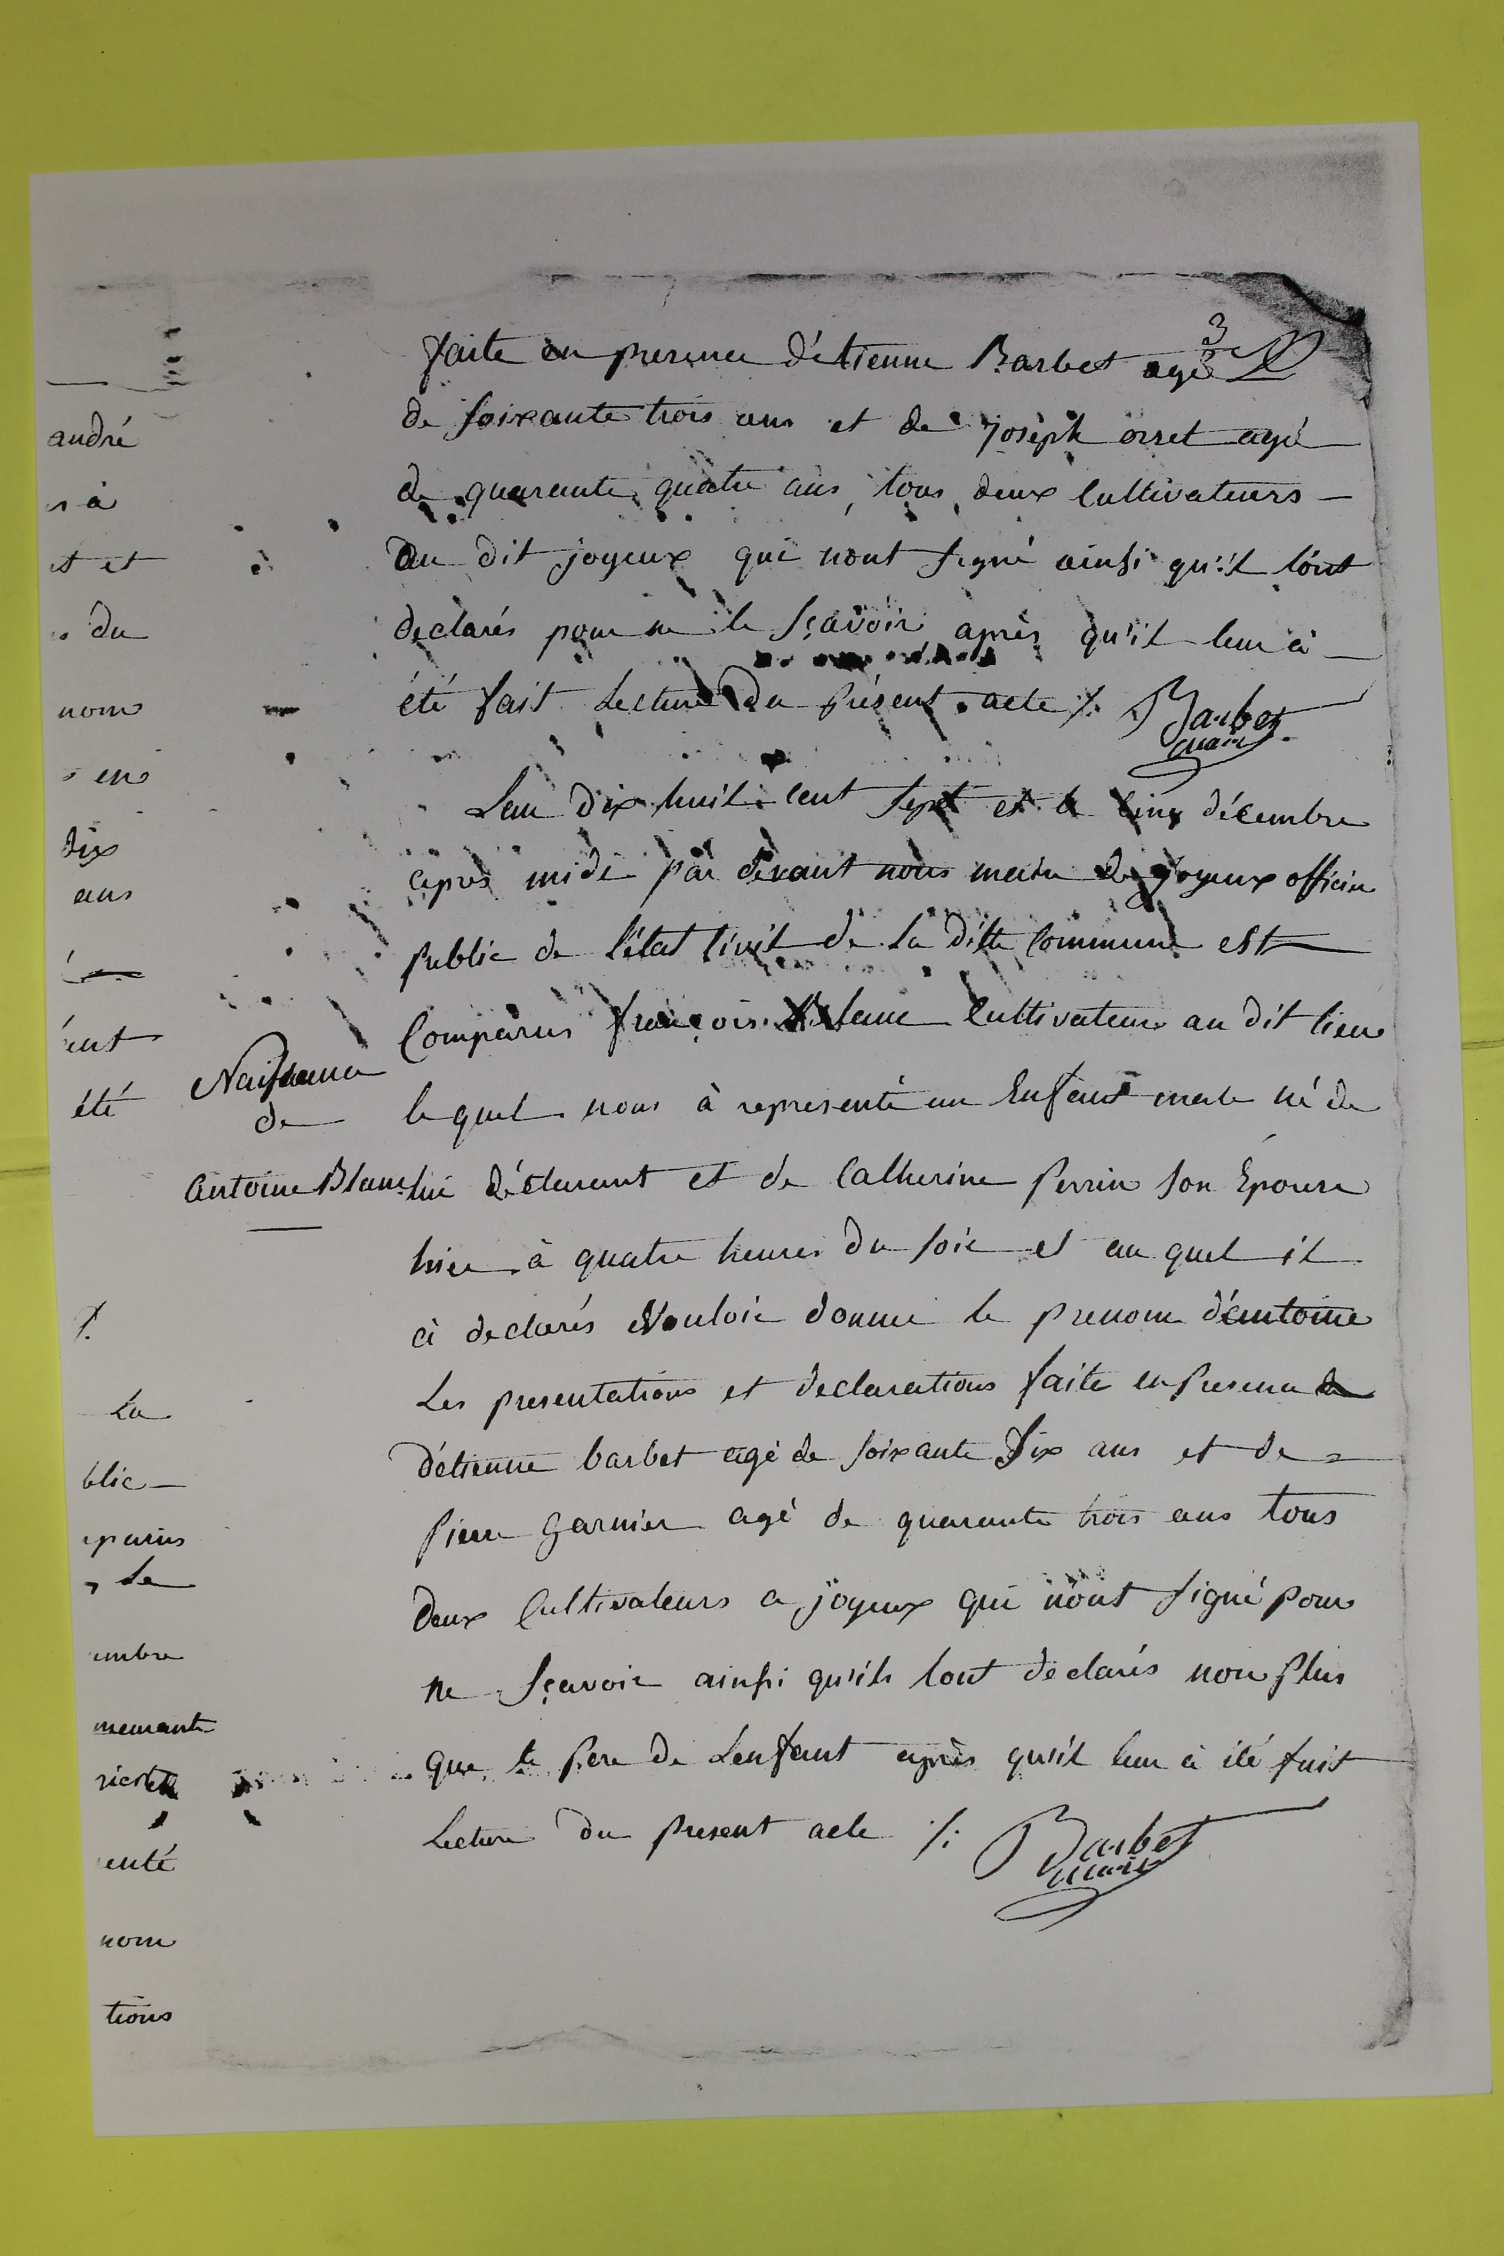 3
faite en presence d'étienne Barbet agé
de soixante trois ans et de joseph orset agé
de quarante quatre ans, tous deux Cultivateurs
au dit joyeux qui n'ont signé ainsi qu'il l'ont
declarés pour ne le sçavoir après qu'il leur à
été fait Lecture du présent acte ./. Barbet
maire
Lan dix huit cent sept et le cinq décembre
apres midi par devant nous maire de joyeux officier
public de l'état Civil de La ditte Commune est
Comparus françois Blanc Cultivateur au dit lieu
lequel nous à representé un Enfant male né de
lui déclarant et de Catherine Perrin son Epouse
hier à quatre heures du soir et au quel il
à declarés Vouloir donner le prenom d'antoine
Les presentations et declarations faite en Presence de
d'étienne barbet agé de soixante Six ans et de =
Pierre Garnier agé de quarante trois ans tous
deux Cultivateurs a joyeux qui n'ont signé pour
ne sçavoir ainsi qu'ils l'ont declarés non plus
que le Pere de L'enfant après qu'il leur à été fait
Lecture du Present acte ./. Barbet
maire
Naissance
de
Antoine Blanc
andré
s à
et et
s du
nom
s en
dix
ans
ent
été
./.
La
blic
mparus
Le
embre
meurant
enté
nom
tions